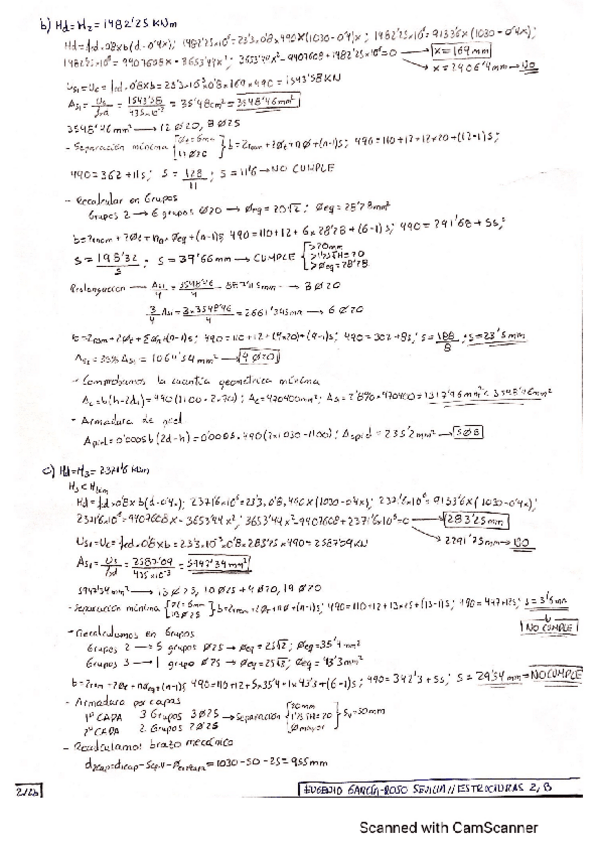 b) Hd=H2=1482'25 KNm
Hd=fcd·0'8xb(d-0'4x); 1482'25x10⁶=23'3·0'8x490x(1030-0'4x); 1482'25x10⁶=9133'6x(1030-0'4x);
1482'25x10⁶=9407608x-3653'44x²; 3653'44x²-9407608+1482'25x10⁶=0 → x=169mm
→ x=2406'4mm → NO
Us1=Uc=fcd·0'8xb=23'3x10⁻³·0'8x169x490=1543'58KN
As1=Us/fyd=1543'58/435x10⁻³=35'48cm²=3548'46mm²
3548'46mm² → 12Ø20, 8Ø25
- Separación mínima b=2rnom+2Øt+nØ+(n-1)s; 490=110+12+12x20+(12-1)s;
490=362+11s; s=128/11; s=11'6 → NO CUMPLE
- Recalcular en Grupos
Grupos 2 → 6 grupos Ø20 → Øeq=20√2; Øeq=28'28mm
b=2rnom+2Øt+nØeq+(n-1)s; 490=110+12+6x28'28+(6-1)s; 490=291'68+5s;
s=198'32/5; s=39'66mm → CUMPLE >20mm
>Øeq=28'28
Prolongación → As1/4=3548'46/4=887'115mm² → 3Ø20
3/4 As1=3x3548'46/4=2661'345mm → 6Ø20
As2=30%As1=1064'54mm² → 4Ø20
- Comprobamos la cuantía geométrica mínima
- Armadura de piel
Apiel=0'0005b(2d-h)=0'0005·490(2x1030-1100); Apiel=235'2mm² → 5Ø8
c) Hd=H3=2371'6 KNm
H3<Hlim
Hd=fcd·0'8xb(d-0'4x); 2371'6x10⁶=23'3·0'8·490x(1030-0'4x); 2371'6x10⁶=9133'6x(1030-0'4x);
2371'6x10⁶=9407608x-3653'44x²; 3653'44x²-9407608+2371'6x10⁶=0 → 283'25mm
→ 2291'75mm → NO
Us1=Uc=fcd·0'8xb=23'3x10⁻³·0'8x283'25x490=2587'09KN
As1=Us/fyd=2587'09/435x10⁻³=5947'34mm²
5947'34mm² → 13Ø25, 10Ø25+4Ø20, 19Ø20
- Separación mínima b=2rnom+2Øt+nØ+(n-1)s; 490=110+12+13x25+(13-1)s; 490=447+12s; s=3'5mm
NO CUMPLE
- Recalculamos en Grupos
Grupos 2 → 5 grupos Ø25 → Øeq=25√2; Øeq=35'4mm
Grupos 3 → 1 grupo Ø25 → Øeq=25√3; Øeq=43'3mm
b=2rnom+2Øt+nØeq+(n-1)s; 490=110+12+5x35'4+1x43'3+(6-1)s; 490=342'3+5s; s=29'54mm → NO CUMPLE
- Armadura por capas
1ª CAPA 3 Grupos 3Ø25 → Separación
2ª CAPA 2 Grupos 2Ø25
Sv=50mm
- Recalculamos brazo mecánico
d2cap=d1cap-Sep.V-Ø=1030-50-25=955mm
EUGENIO GARCÍA-ROSO SEVILLA // ESTRUCTURAS 2, B
Scanned with CamScanner